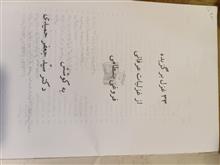 ۳۳ غزل برگزیده
از غزلیات عرفانی
فروغی بسطامی
به کوشش
دکتر سید جعفر حمیدی